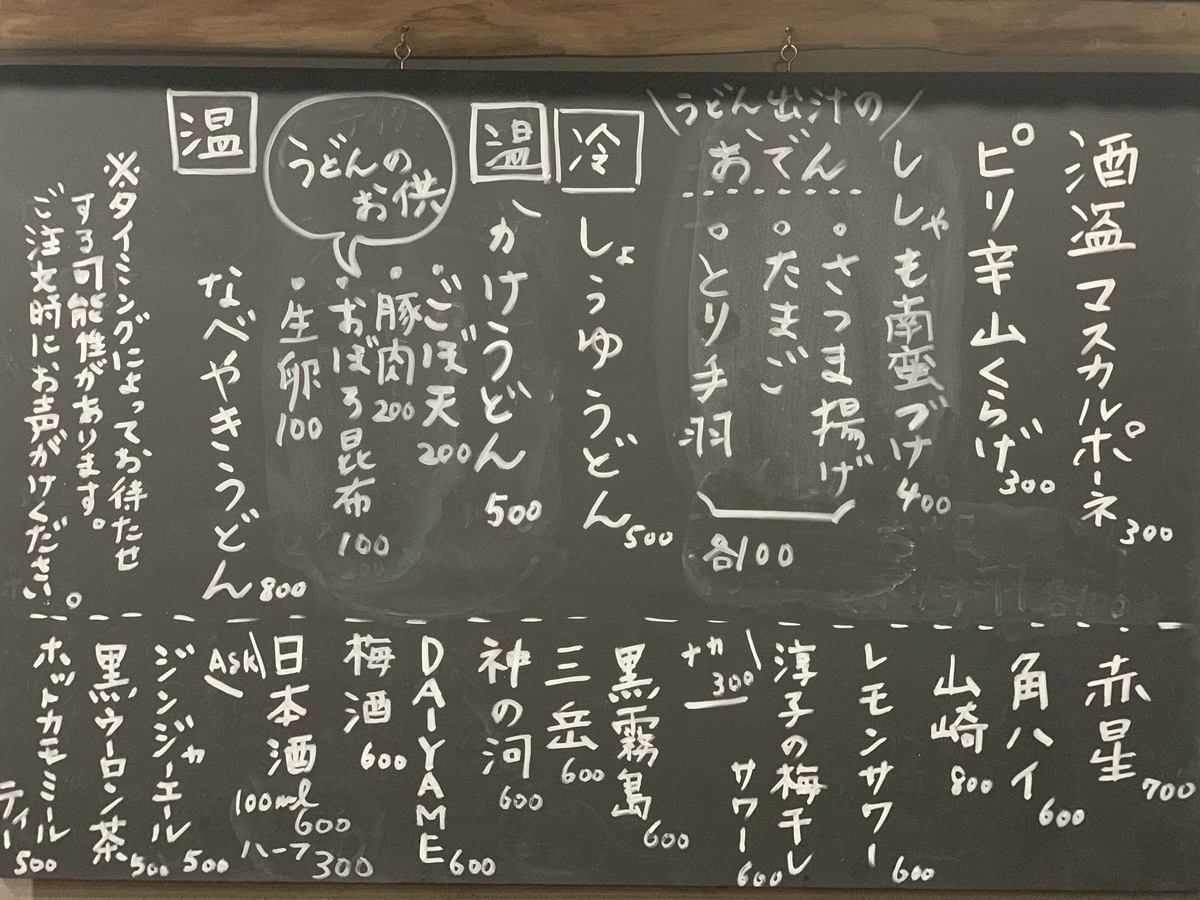 酒盗マスカルポーネ 300
ピリ辛山くらげ 300
ししゃも南蛮づけ 400
\うどん出汁の/
おでん
・さつま揚げ
・たまご
・とり手羽
各100
冷
しょうゆうどん 500
温
かけうどん 500
うどんの
お供
・ごぼ天 200
・豚肉 200
・おぼろ昆布 100
・生卵 100
温
なべやきうどん 800
※タイミングによってお待たせ
する可能性があります。
ご注文時にお声がけください。
赤星 700
角ハイ 600
山崎 800
レモンサワー 600
淳子の梅干し
サワー 600
ナカ 300
黒霧島 600
三岳 600
神の河 600
DAIYAME 600
梅酒 600
日本酒
100ml 600
ハーフ 300
ASK
ジンジャーエール 500
黒ウーロン茶 500
ホットカモミール
ティー 500